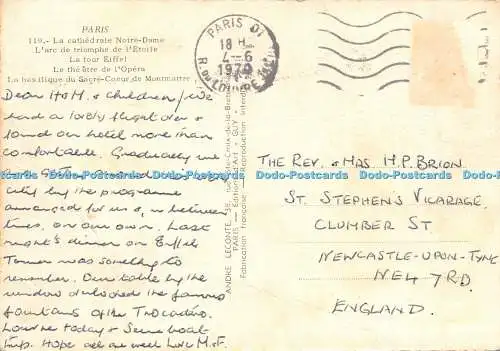 PARIS
119.- La cathédrale Notre-Dame
L'arc de triomphe de l'Etoile
La tour Eiffel
Le théâtre de l'Opéra
La basilique du Sacré-Coeur de Montmartre
PARIS 01
18 H
4-6
R. DU LOUVRE
Dear H & M. & children / We
had a lovely flight over &
found our hotel more than
comfortable. Gradually we
are getting round the
city by the programme
arranged for us &, in between
times, on our own. Last
night's dinner on Eiffel
Tower was something to
remember. Our table by the
window overlooked the famous
fountains of the Trocadero.
Louvre today & Seine boat
trip. Hope all are well Love M. & F.
ANDRÉ LECONTE, 38, rue Sainte-Croix-de-la-Bretonnerie
PARIS — Editions d'Art « GUY »
Fabrication française - Reproduction interdite
THE REV. & MRS H.P. BRION
ST. STEPHEN'S VICARAGE,
CLUMBER ST.
NEWCASTLE-UPON-TYNE
NE4 7RD.
ENGLAND.
Dodo-Postcards Dodo-Postcards Dodo-Postcards Dodo-Postcards